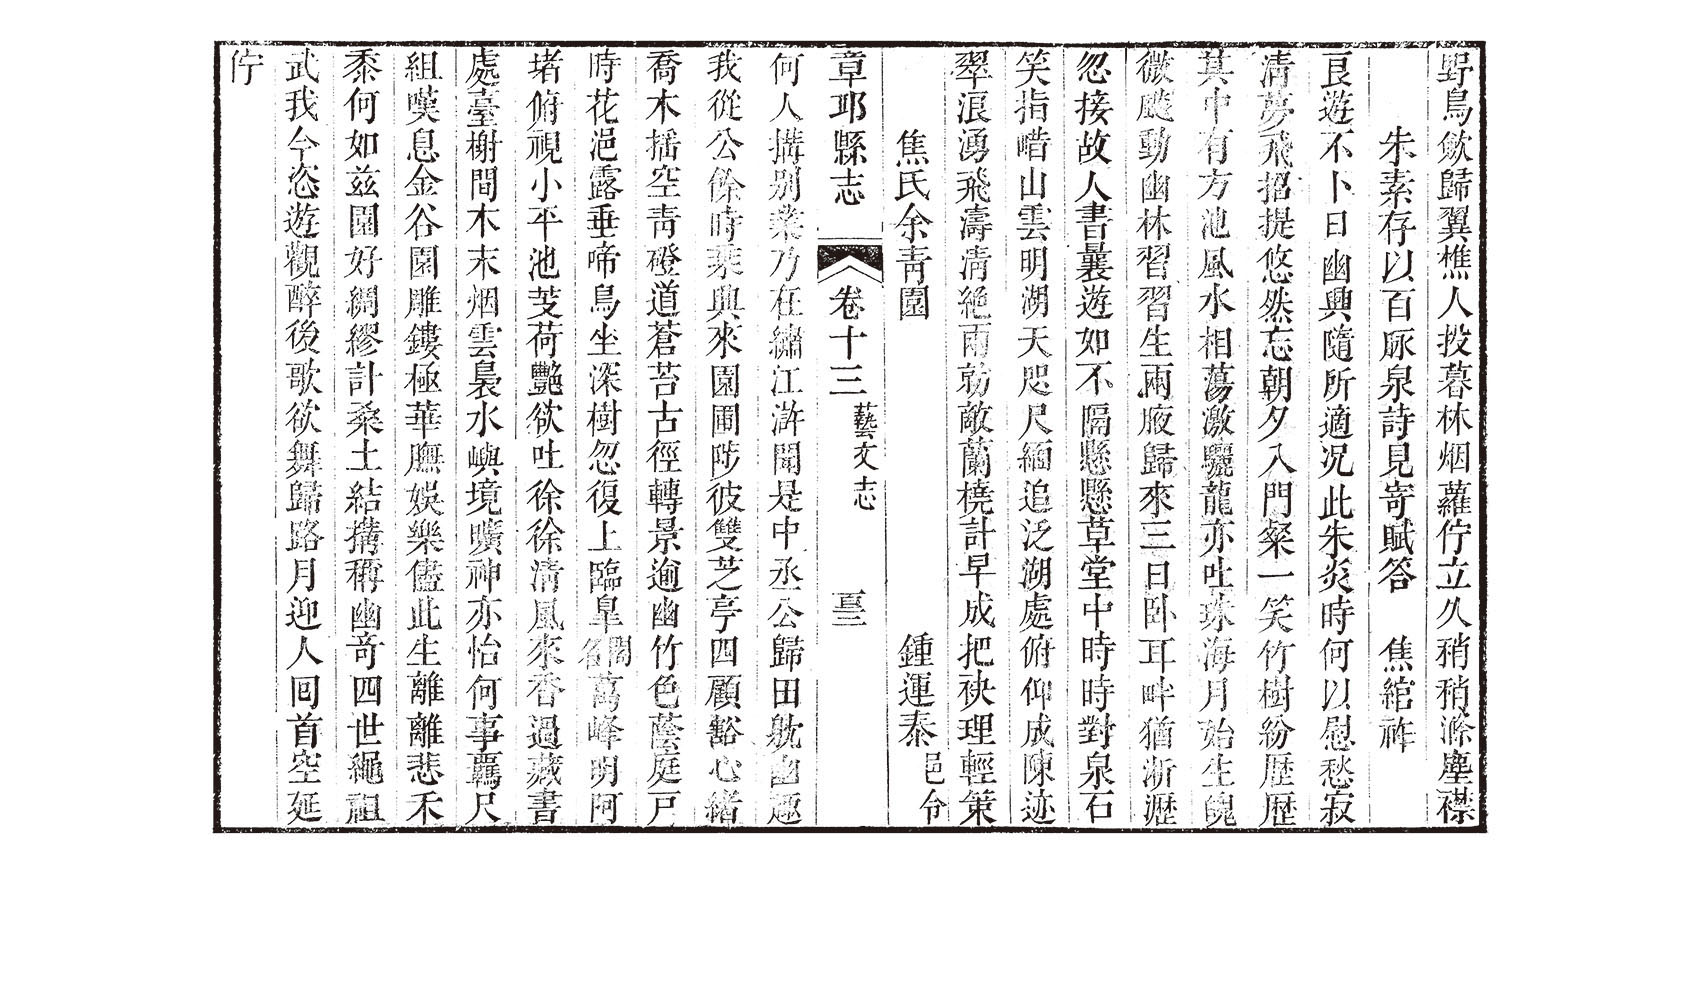 野鳥斂歸翼樵人投暮林烟蘿佇立久稍稍滌塵襟
朱素存以百脉泉詩見寄賦答 焦綰祚
良遊不卜日幽興隨所適况此朱炎時何以慰愁寂
清夢飛招提悠然忘朝夕入門粲一笑竹樹紛歴歴
其中有方池風水相蕩激驪龍亦吐珠海月始生魄
微颸動幽林習習生兩腋歸來三日卧耳畔猶淅瀝
忽接故人書曩遊如不隔懸懸草堂中時時對泉石
笑指㟙山雲明湖天咫尺緬追泛湖處俯仰成陳迹
翠浪湧飛濤清絶雨勍敵蘭橈計早成把袂理輕策
焦氏余青園 鍾運泰邑令
章邱縣志 卷十三藝文志 三
何人搆别業乃在繡江滸聞是中丞公歸田躭幽趣
我從公餘時乘興來園圃陟彼雙芝亭四顧豁心緒
喬木插空青磴道蒼苔古徑轉景逾幽竹色蔭庭戸
時花浥露垂啼鳥坐深樹忽復上臨臯閣名萬峰明阿
堵俯視小平池芰荷艶欲吐徐徐清風來香過藏書
處臺榭間木末烟雲裊水嶼境曠神亦怡何事羈尺
組嘆息金谷園雕鏤極華膴娛樂儘此生離離悲禾
黍何如兹園好綢繆計桑土結搆稱幽竒四世繩祖
武我今恣遊觀醉後歌欲舞歸路月迎人回首空延
佇